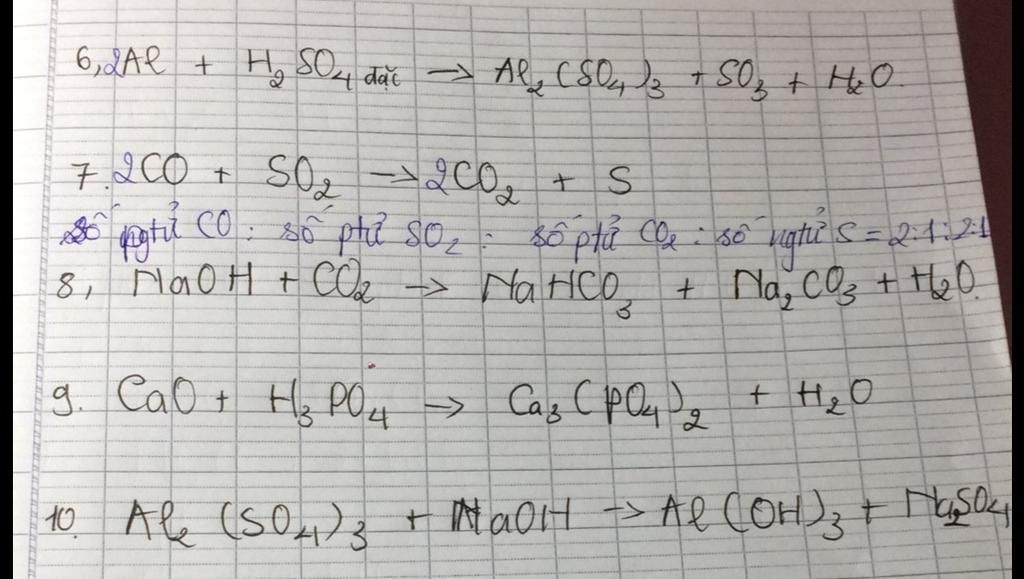 6, 2Al + H₂SO₄ đặc → Al₂(SO₄)₃ + SO₃ + H₂O.
7. 2CO + SO₂ → 2CO₂ + S
số pgtử CO : số ptử SO₂ : số ptử CO₂ : số ngtử S = 2:1:2:1
8, NaOH + CO₂ → NaHCO₃ + Na₂CO₃ + H₂O.
9. CaO + H₃PO₄ → Ca₃(PO₄)₂ + H₂O
10. Al₂(SO₄)₃ + NaOH → Al(OH)₃ + Na₂SO₄